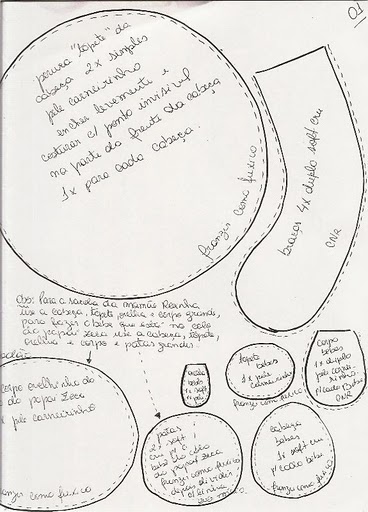 01
peruca "topete" da
cabeça 2x simples
pele carneirinho
encher levemente e
costurar c/ ponto invisivel
na parte da frente da cabeça
1x para cada cabeça.
franzir como fuxico
braços 4x duplo soft cru
CNR
Obs: Para a sacola da mamãe Rosinha,
use a cabeça, topete, orelha e corpo grande,
para fazer o bebe que está no colo
do papai Zeca use a cabeça, topete,
orelha e corpo e patas grandes.
corpo ovelhinha do
do papai Zeca
pele carneirinho
franzir como fuxico
bebes
1x soft
patas
2x soft
cru p/ o
bebê do colo
do papai Zeca
franzir como fuxico
depois dividir
topete
bebes
1x pele
carneirinho
franzir como fuxico
corpo
bebes
1x duplo
pele carnei-
rinho
p/ cada bebe
CNR
cabeça
bebes
1x soft cru
p/ cada bebe
franzir como fuxico